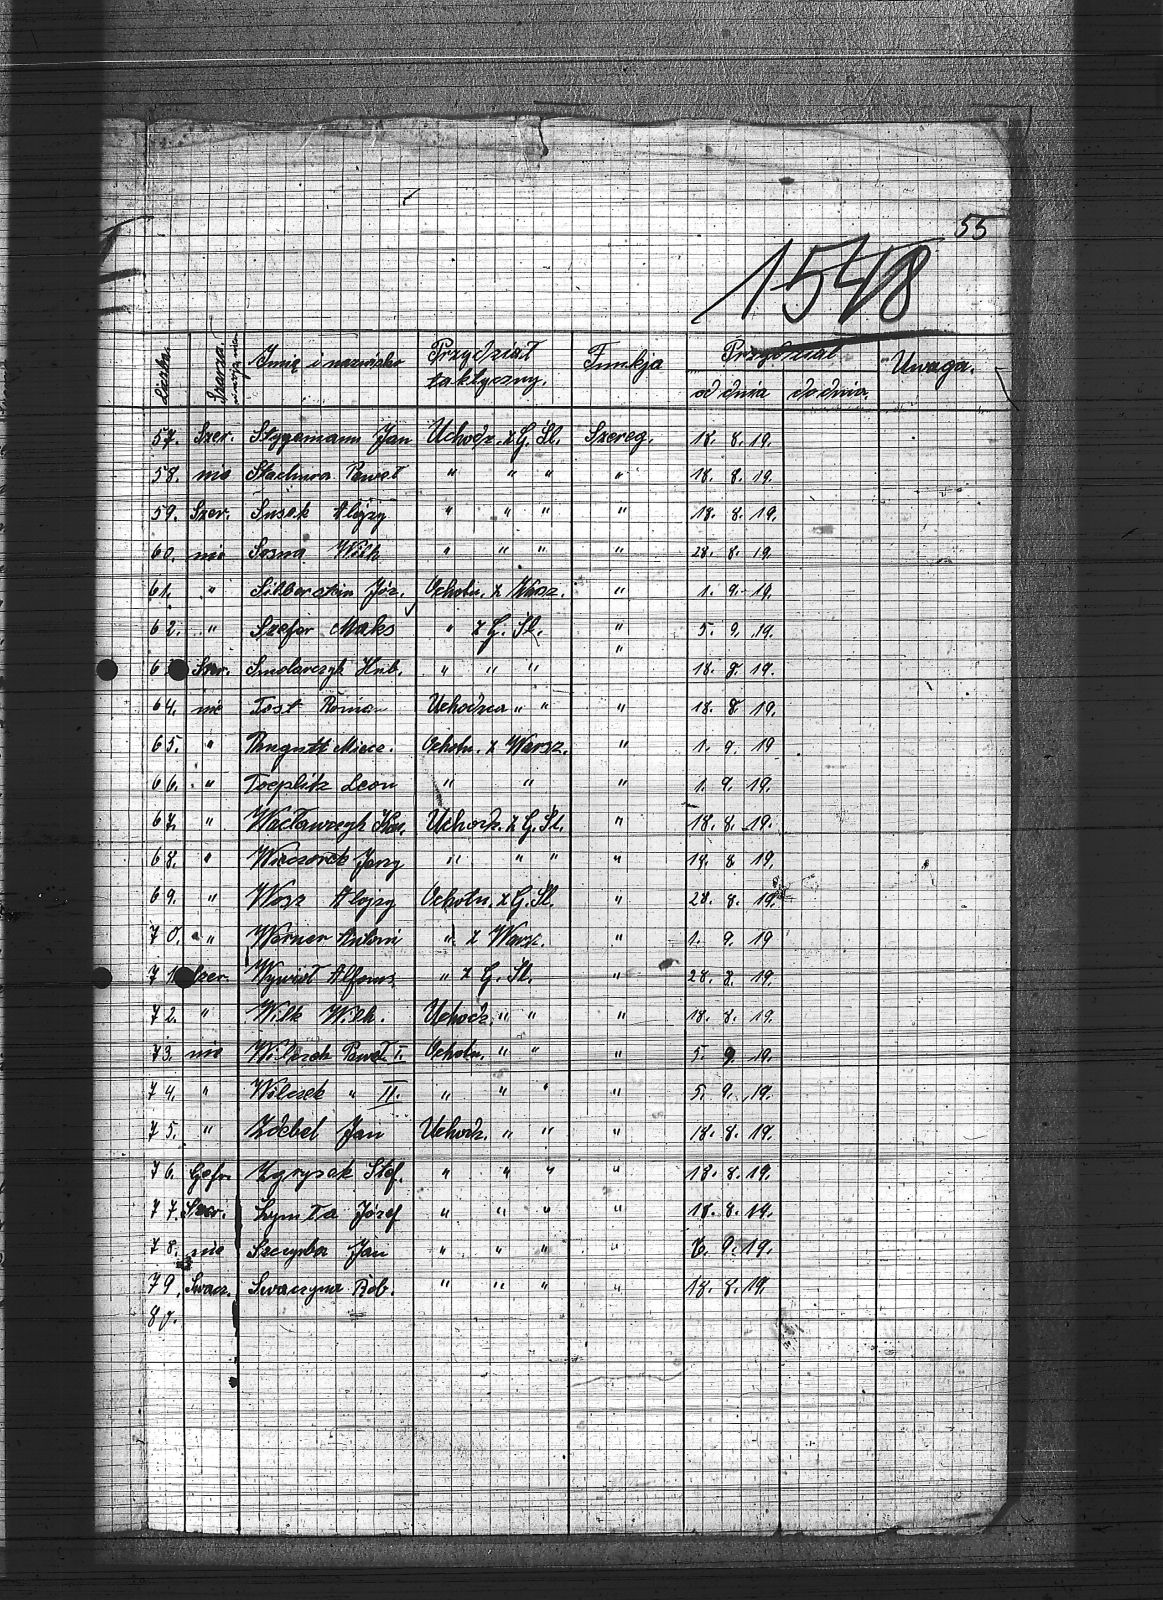 55
1548
Liczba. Szarża. Imię i nazwisko Przydział taktyczny. Funkcja Przydział od dnia do dnia Uwaga.
57. Szer. Stygemann Jan Uchodz. z G. Śl. Szereg. 18. 8. 19.
58. nie Stachura Paweł " " " " 18. 8. 19.
59. Szer. Susek Alojzy " " " " 18. 8. 19.
60. nie Sosna Wilh " " " " 28. 8. 19.
61. " Silberstein Józ. Ochotn. z Warsz. " 1. 9. 19.
62. " Szefer Maks " z G. Śl. " 5. 9. 19.
6 Szer. Smolarczyk Hub. " " " " 18. 8. 19.
64. nie Test Roman Uchodzca " " " 18. 8. 19.
65. " Miecz. Ochotn. z Warsz. " 1. 9. 19
66. " Toeplitz Leon " " " 1. 9. 19.
67. " Wacławczyk Uchodz. z G. Śl. " 18. 8. 19.
68. " Wieczorek Jerzy " " " " 18. 8. 19.
69. " Wosz Alojzy Ochotn. z G. Śl. " 28. 8. 19.
70. " Werner Antoni " z Warsz. " 1. 9. 19
71 Szer. Wywiół Alfons " z G. Śl. " 28. 8. 19.
72. " Wilk Wilh. Uchodz. " " " 18. 8. 19.
73. nie Wilczek Paweł I. Ochotn. " " " 5. 9. 19.
74. " Wilczek " II. " " " " 5. 9. 19.
75. " Zdebel Jan Uchodz. " " " 18. 8. 19.
76. Gefr. Zgrysek Stef. " " " " 18. 8. 19.
77. Szer. Żymła Józef " " " " 18. 8. 19.
78. nie Szczyrba Jan " " " " 9. 19.
79. Swaczyna Rob. " " " " 18. 8. 19.
80.